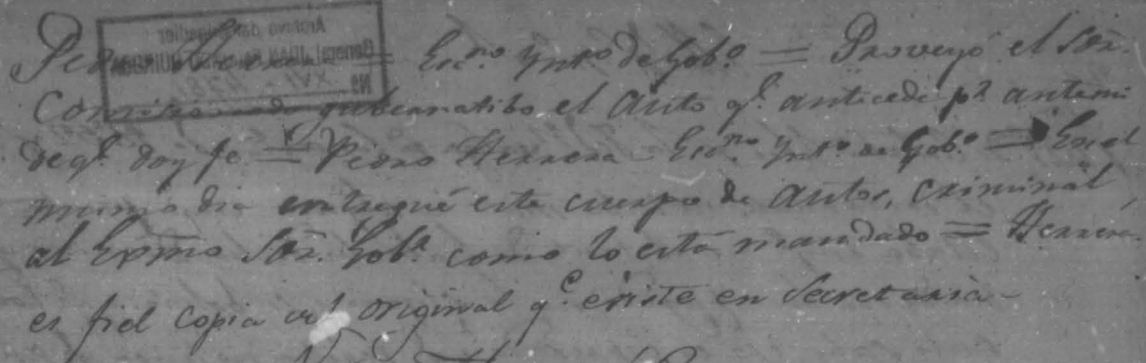 Pedro Herrera = Esc.no Ynt.o de Gob.o = Proveyó el Sõr.
Comisionado gubernatibo el auto q.e antecede p.r antemi
de q.e doy fe = Pedro Herrera Esc.no Ynt.o de Gob.o = En el
mismo dia entregué este cuerpo de autos, criminal,
al Exmo Sõr. Gob.r como lo está mandado = Herrera
es fiel copia del original q.e existe en Secretaria -